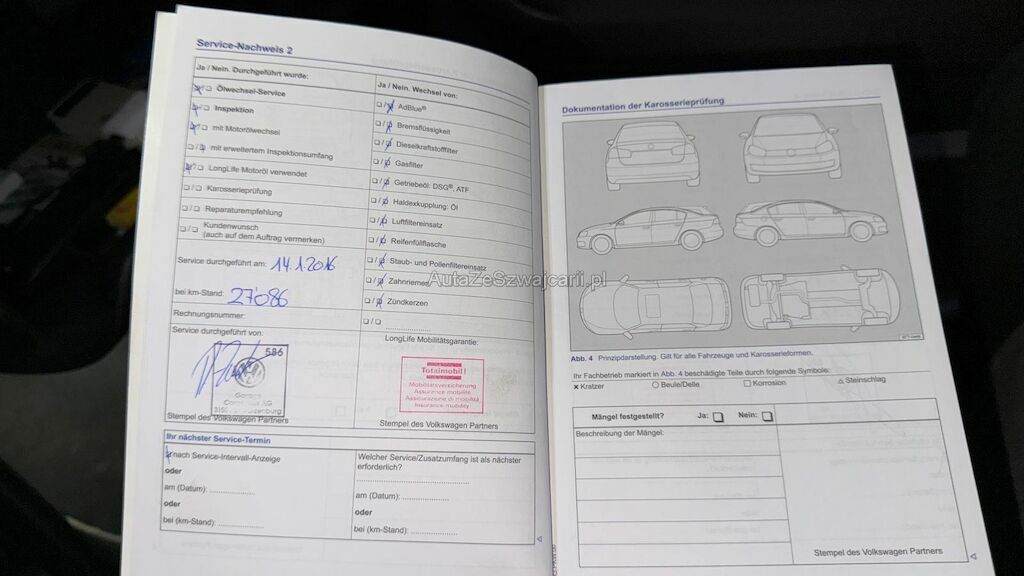 Service-Nachweis 2
Ja / Nein. Durchgeführt wurde:
Ölwechsel-Service
Inspektion
mit Motorölwechsel
mit erweitertem Inspektionsumfang
LongLife Motoröl verwendet
Karosserieprüfung
Reparaturempfehlung
Kundenwunsch
(auch auf dem Auftrag vermerken)
Service durchgeführt am: 14.1.2016
bei km-Stand: 27'086
Rechnungsnummer:
Service durchgeführt von:
586
Garage
AG
Stempel des Volkswagen Partners
Ja / Nein. Wechsel von:
AdBlue®
Bremsflüssigkeit
Dieselkraftstofffilter
Gasfilter
Getriebeöl: DSG®, ATF
Haldexkupplung: Öl
Luftfiltereinsatz
Reifenfüllflasche
Staub- und Pollenfiltereinsatz
Zahnriemen
Zündkerzen
LongLife Mobilitätsgarantie:
Totalmobil!
Mobilitätsversicherung
Assurance mobilité
Assicurazione di mobilità
Insurance mobility
Stempel des Volkswagen Partners
Ihr nächster Service-Termin
nach Service-Intervall-Anzeige
oder
am (Datum): ....................
oder
bei (km-Stand): ....................
Welcher Service/Zusatzumfang ist als nächster
erforderlich?
am (Datum): ....................
oder
bei (km-Stand): ....................
AutaZeSzwajcarii.pl
Dokumentation der Karosserieprüfung
Abb. 4 Prinzipdarstellung. Gilt für alle Fahrzeuge und Karosserieformen.
Ihr Fachbetrieb markiert in Abb. 4 beschädigte Teile durch folgende Symbole:
× Kratzer ○ Beule/Delle □ Korrosion △ Steinschlag
Mängel festgestellt? Ja: □ Nein: □
Beschreibung der Mängel:
Stempel des Volkswagen Partners